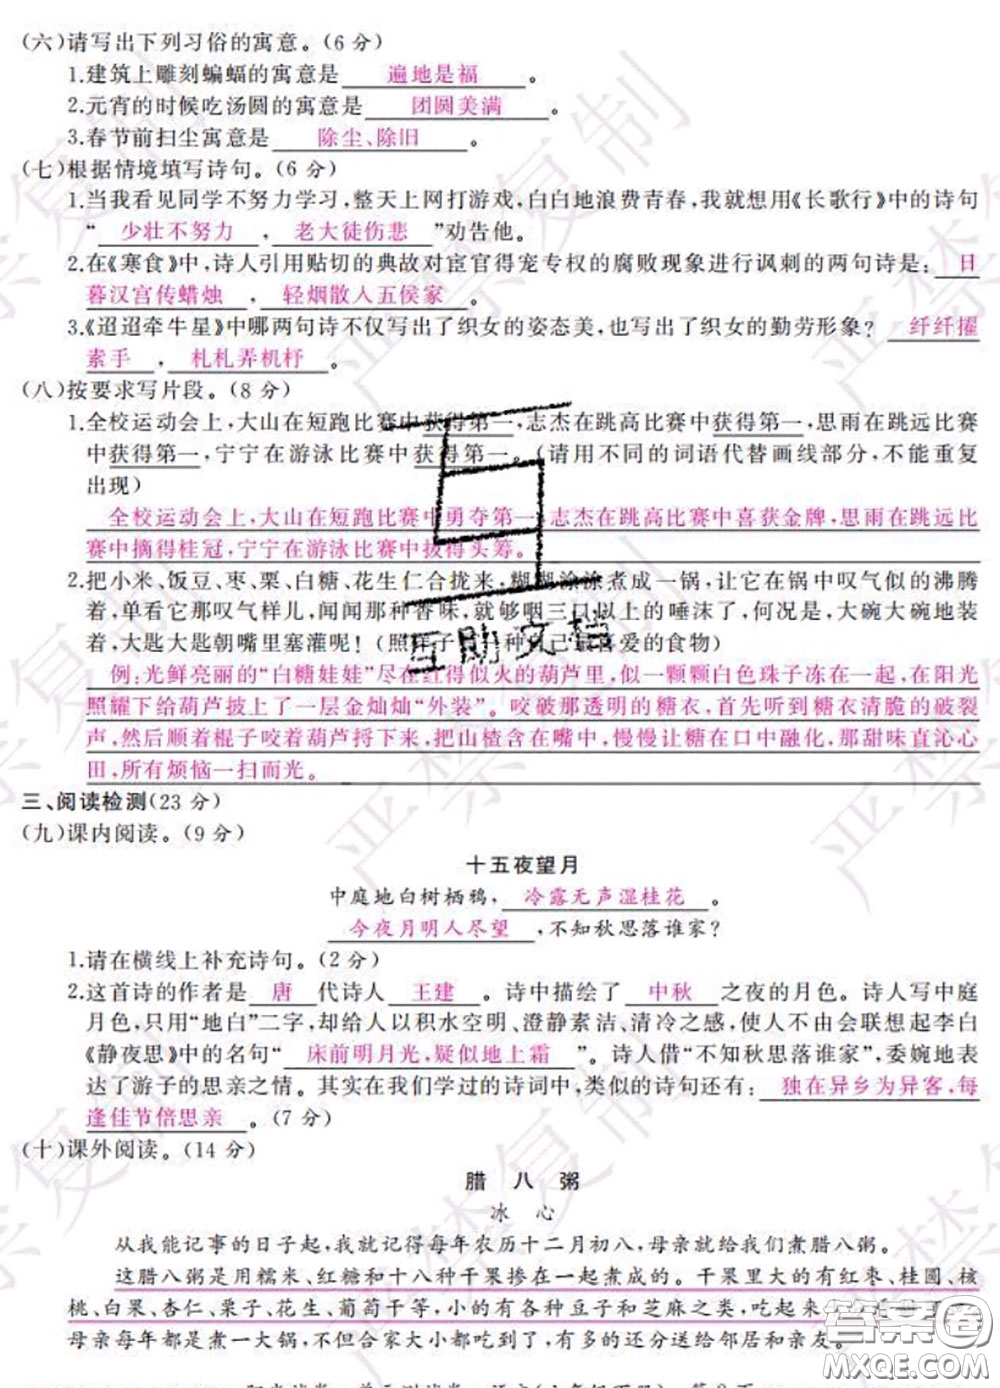 (六)请写出下列习俗的寓意。(6 分)
1.建筑上雕刻蝙蝠的寓意是 遍地是福 。
2.元宵的时候吃汤圆的寓意是 团圆美满 。
3.春节前扫尘寓意是 除尘、除旧 。
(七)根据情境填写诗句。(6 分)
1.当我看见同学不努力学习,整天上网打游戏,白白地浪费青春,我就想用《长歌行》中的诗句
“ 少壮不努力 , 老大徒伤悲 ”劝告他。
2.在《寒食》中,诗人引用贴切的典故对宦官得宠专权的腐败现象进行讽刺的两句诗是: 日
暮汉宫传蜡烛 , 轻烟散入五侯家 。
3.《迢迢牵牛星》中哪两句诗不仅写出了织女的姿态美,也写出了织女的勤劳形象? 纤纤擢
素手 , 札札弄机杼 。
(八)按要求写片段。(8 分)
1.全校运动会上,大山在短跑比赛中获得第一,志杰在跳高比赛中获得第一,思雨在跳远比赛
中获得第一,宁宁在游泳比赛中获得第一。(请用不同的词语代替画线部分,不能重复
出现)
全校运动会上,大山在短跑比赛中勇夺第一,志杰在跳高比赛中喜获金牌,思雨在跳远比
赛中摘得桂冠,宁宁在游泳比赛中拔得头筹。
2.把小米、饭豆、枣、栗、白糖、花生仁合拢来,糊糊涂涂煮成一锅,让它在锅中叹气似的沸腾
着,单看它那叹气样儿,闻闻那种香味,就够咽三口以上的唾沫了,何况是,大碗大碗地装
着,大匙大匙朝嘴里塞灌呢!(照样子 一种 己最喜爱的食物)
例:光鲜亮丽的“白糖娃娃”尽在红得似火的葫芦里,似一颗颗白色珠子冻在一起,在阳光
照耀下给葫芦披上了一层金灿灿“外装”。咬破那透明的糖衣,首先听到糖衣清脆的破裂
声,然后顺着棍子咬着葫芦捋下来,把山楂含在嘴中,慢慢让糖在口中融化,那甜味直沁心
田,所有烦恼一扫而光。
三、阅读检测(23 分)
(九)课内阅读。(9 分)
十五夜望月
中庭地白树栖鸦, 冷露无声湿桂花 。
今夜月明人尽望 ,不知秋思落谁家?
1.请在横线上补充诗句。(2 分)
2.这首诗的作者是 唐 代诗人 王建 。诗中描绘了 中秋 之夜的月色。诗人写中庭
月色,只用“地白”二字,却给人以积水空明、澄静素洁、清冷之感,使人不由会联想起李白
《静夜思》中的名句“ 床前明月光,疑似地上霜 ”。诗人借“不知秋思落谁家”,委婉地表
达了游子的思亲之情。其实在我们学过的诗词中,类似的诗句还有: 独在异乡为异客,每
逢佳节倍思亲 。(7 分)
(十)课外阅读。(14 分)
腊 八 粥
冰 心
从我能记事的日子起,我就记得每年农历十二月初八,母亲就给我们煮腊八粥。
这腊八粥是用糯米、红糖和十八种干果掺在一起煮成的。干果里大的有红枣、桂圆、核
桃、白果、杏仁、栗子、花生、葡萄干等,小的有各种豆子和芝麻之类,吃起来
母亲每年都是煮一大锅,不但合家大小都吃到了,有多的还分送给邻居和亲友。
互助文档
严禁复制
答案圈
MXQE.COM